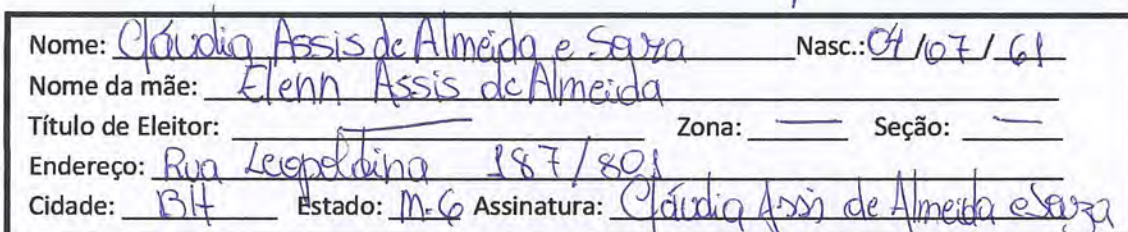 Nome: Cláudia Assis de Almeida e Souza Nasc.: 04/07/61
Nome da mãe: Elenn Assis de Almeida
Título de Eleitor: — Zona: — Seção: —
Endereço: Rua Leopoldina 187/801
Cidade: BH Estado: M.G Assinatura: Cláudia Assis de Almeida e Souza